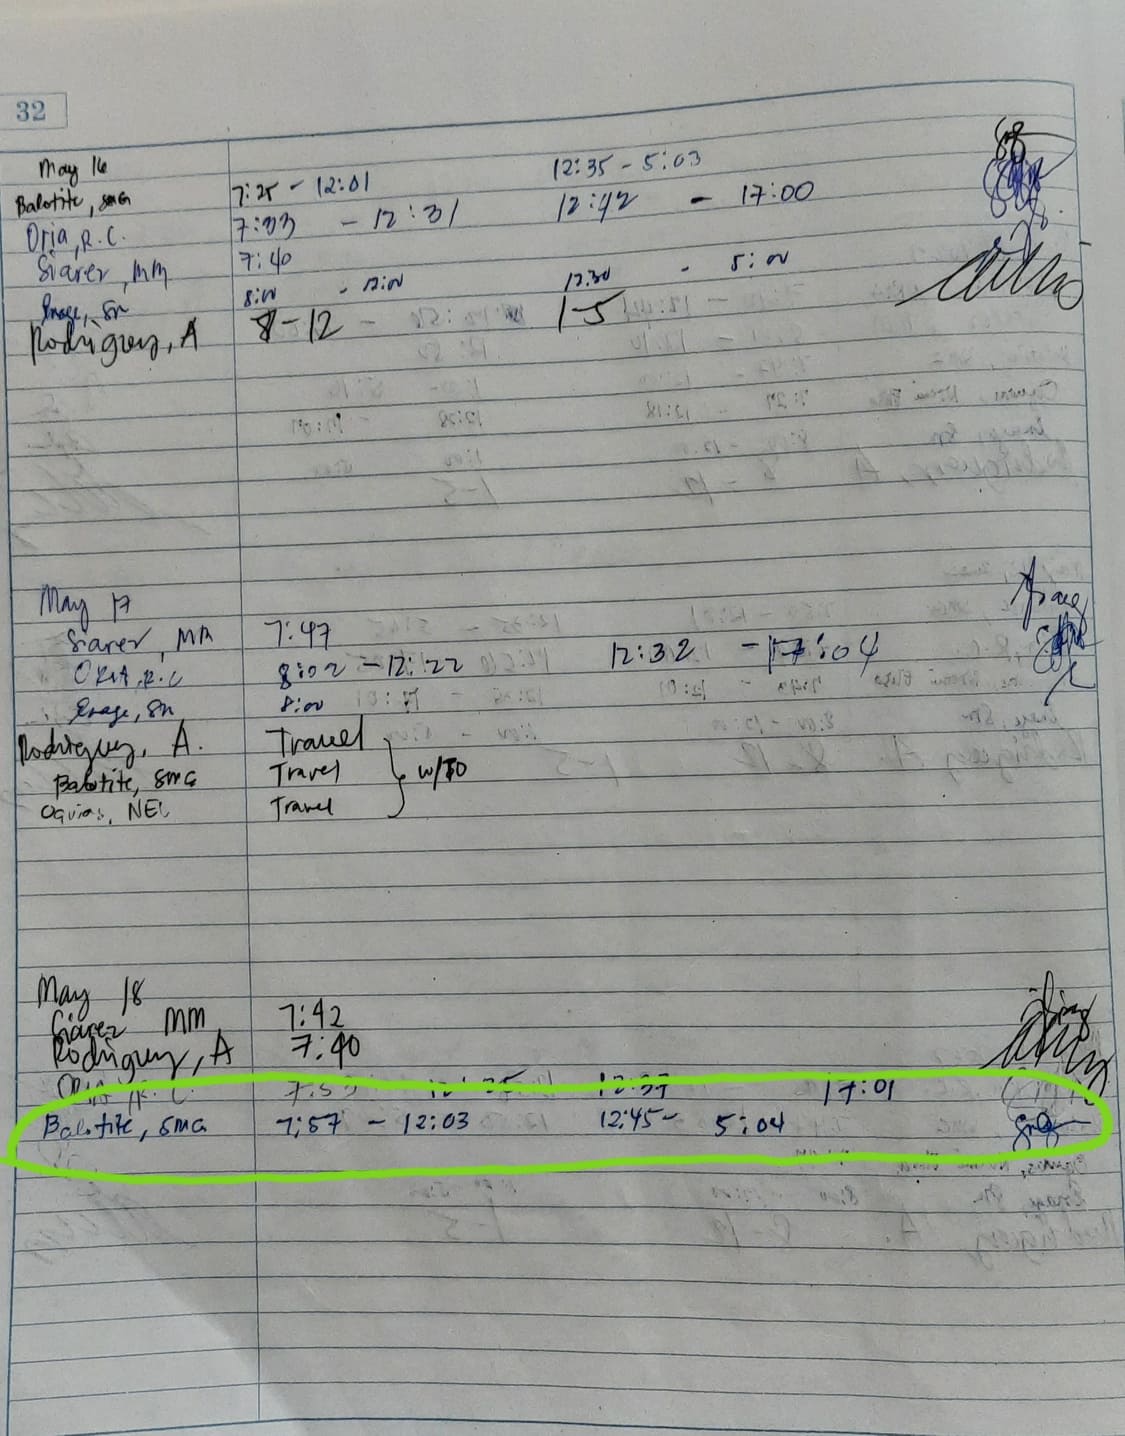 32
May 16
Balotite, SMG 7:25 - 12:01 12:35 - 5:03
Oria, R.C. 7:33 - 12:31 12:42 - 17:00
Siarez, MM 7:40
Enage, SN 8:00 - 12:00 12:30 - 5:00
Rodriguez, A 8-12 1-5
May 17
Siarez, MM 7:47
ORIA, R.C 8:02 - 12:22 12:32 - 17:04
Enage, SN 8:00
Rodriguez, A. Travel
Balotite, SMG Travel w/TO
Travel
May 18
Siarez MM 7:42
Rodriguez, A 7:40
ORIA, R.C. 12:37 17:01
Balotite, SMG 7:57 - 12:03 12:45 - 5:04